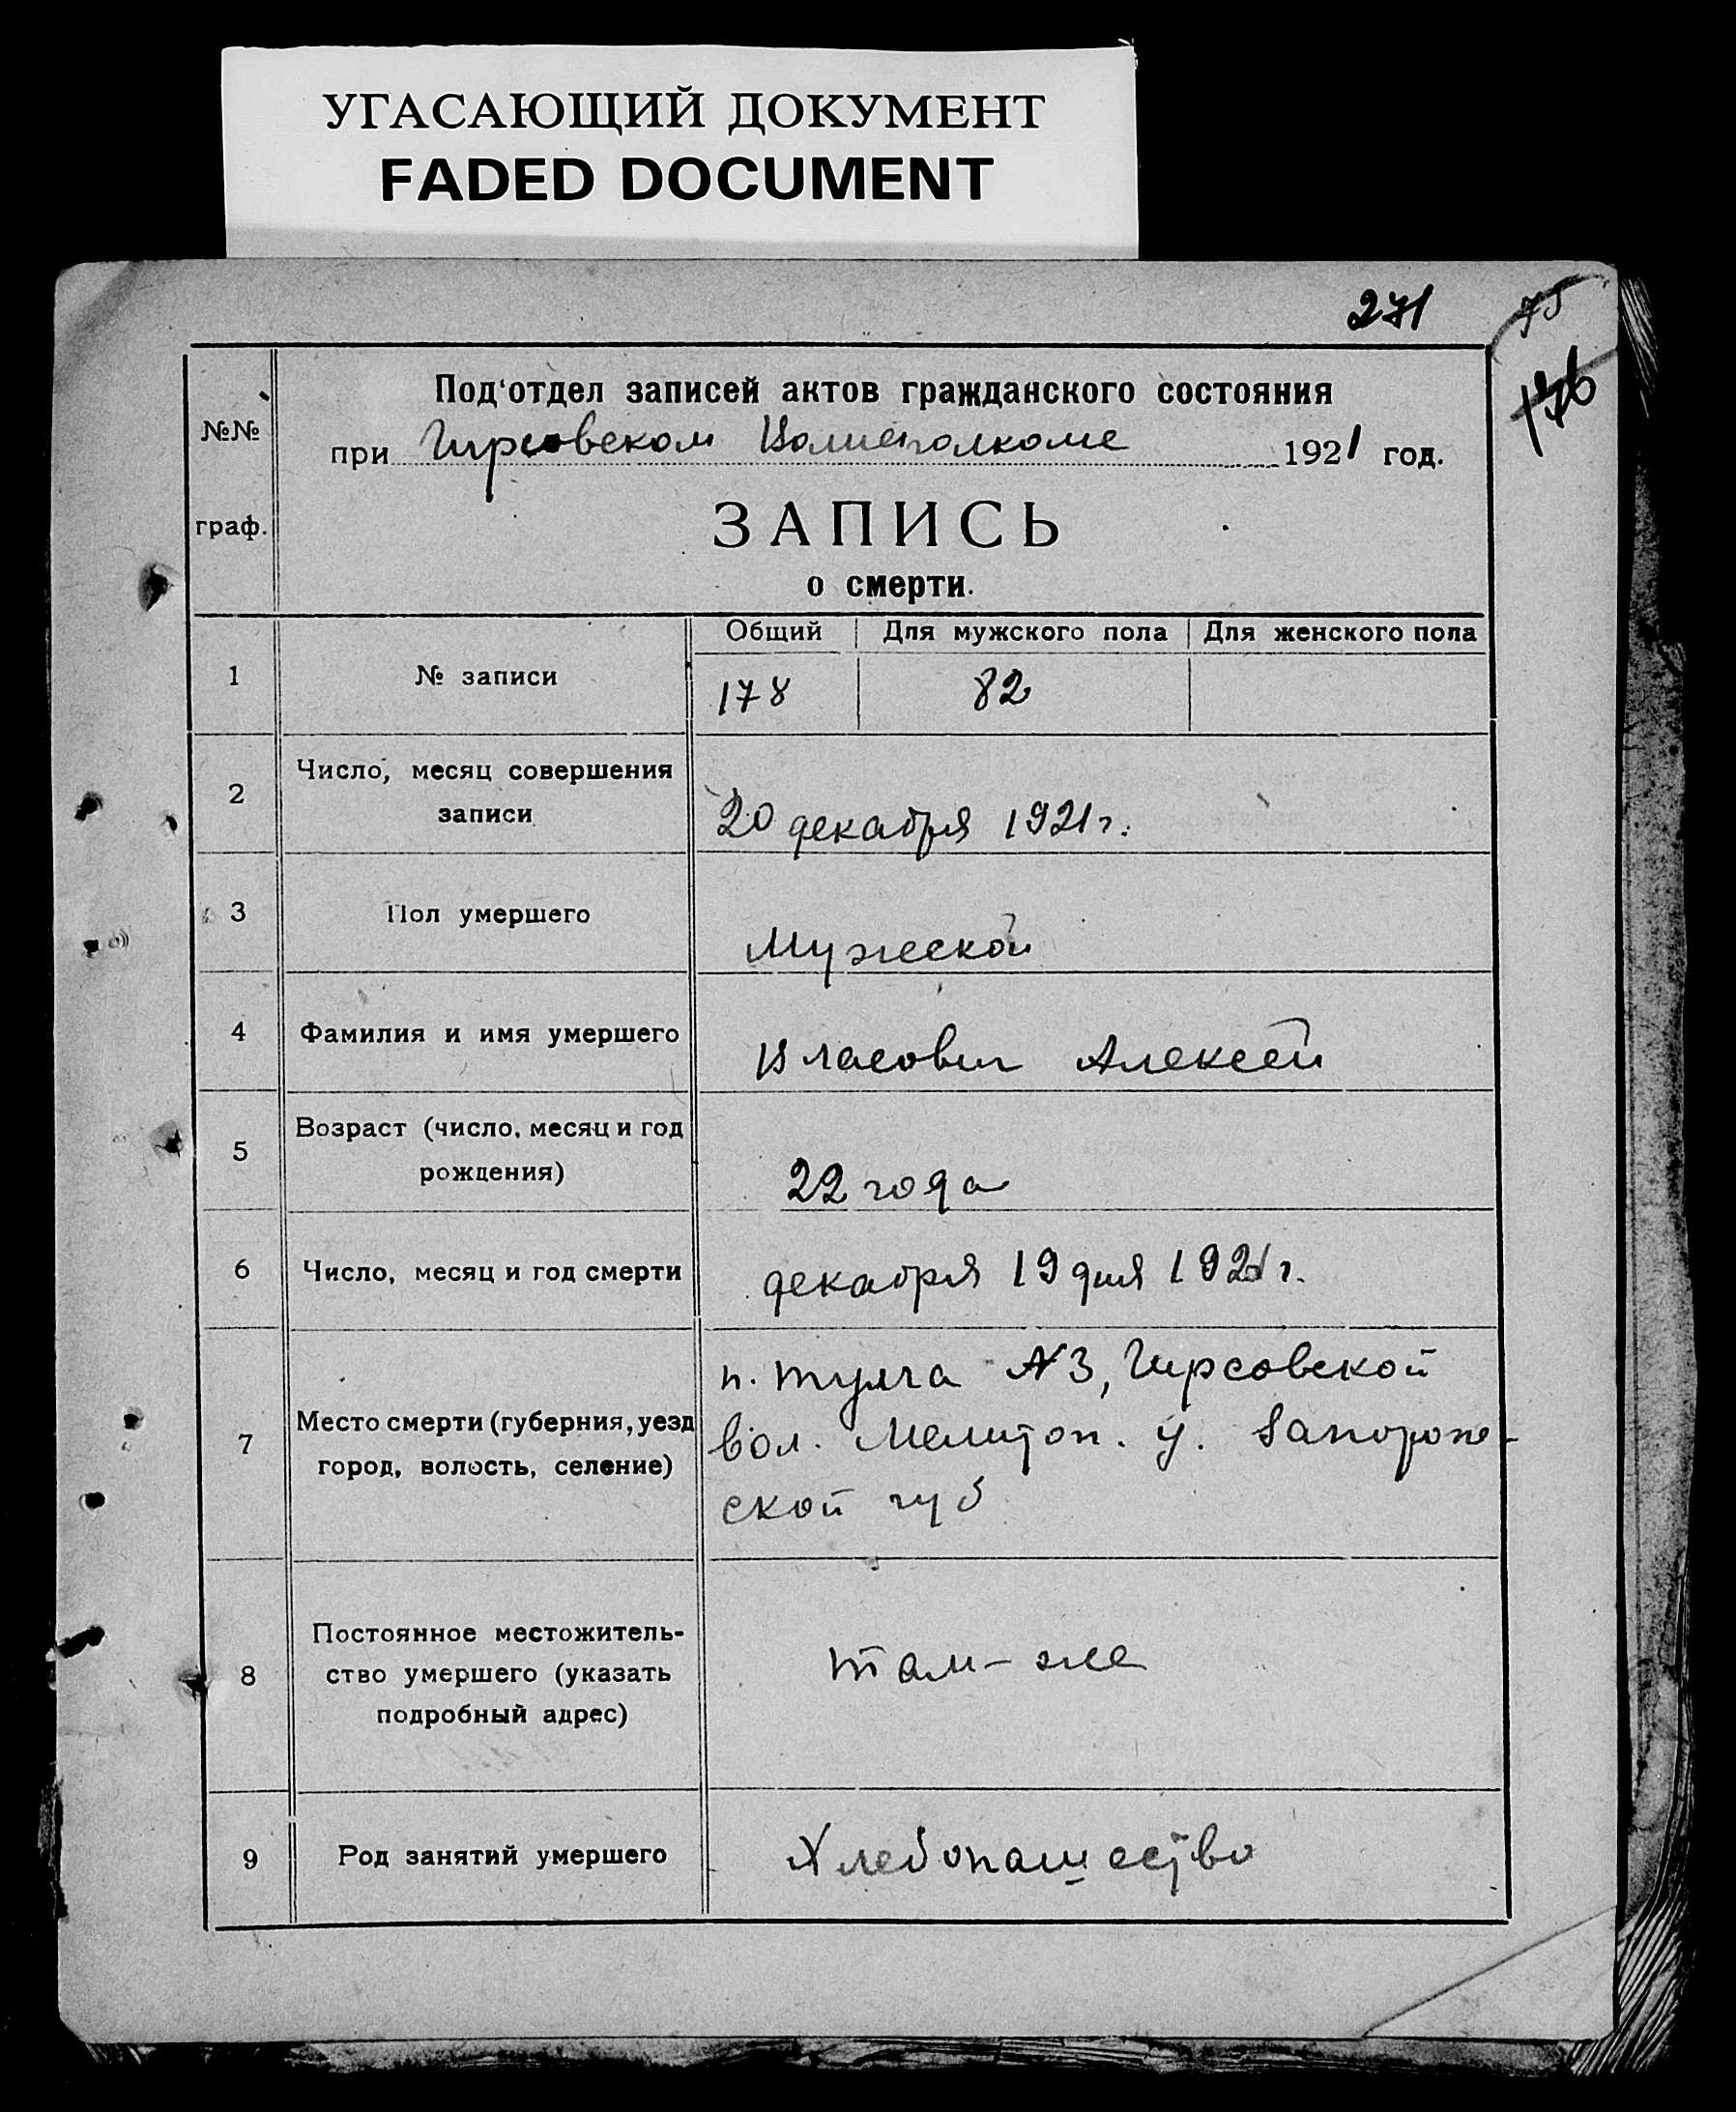 УГАСАЮЩИЙ ДОКУМЕНТ
FADED DOCUMENT
271
75
176
№№
граф.
Под'отдел записей актов гражданского состояния
при Гирсовском Волисполкоме 1921 год.
ЗАПИСЬ
о смерти.
Общий Для мужского пола Для женского пола
1 № записи 178 82
2 Число, месяц совершения
записи
20 декабря 1921 г.
3 Пол умершего Мужской
4 Фамилия и имя умершего Власович Алексей
5 Возраст (число, месяц и год
рождения)
22 года
6 Число, месяц и год смерти декабря 19 дня 1921 г.
7 Место смерти (губерния, уезд
город, волость, селение)
п. Тулга №3, Гирсовской
вол. Мелитоп. у. Запорож-
ской губ
8 Постоянное местожитель-
ство умершего (указать
подробный адрес)
там-же
9 Род занятий умершего Хлебопашество